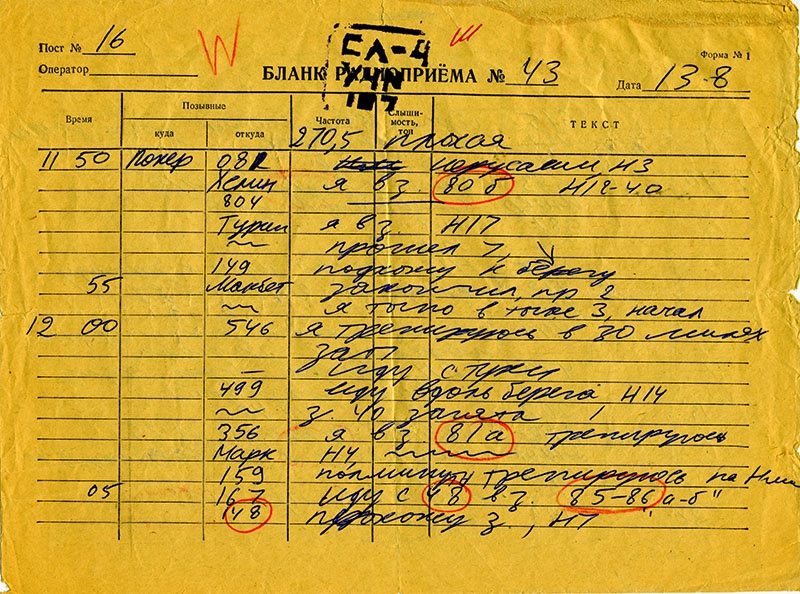 Пост № 16
Оператор
СЛ-4
Форма № 1
БЛАНК РАДИОПРИЁМА № 43
Дата 13-8
Время Позывные Частота Слыши-мость, тон ТЕКСТ
куда откуда
270,5 плохая
11 50 Покер 08 Н3
я в з. 80 б Н12-40
804
Турин я в з. Н17
прошел 7,
149 подхожу к берегу
55 Макбет закончил пр 2
я точно в точке 3, начал
12 00 546 я тренируюсь в 30 милях
зап
— иду с
499 иду вдоль берега Н14
з. 40 занята
356 я в з. 81а тренируюсь
Марк Н4
159 тренируюсь на
05 167 иду с 48 в з. 85-86 "а-б"
148 прохожу з., Н7